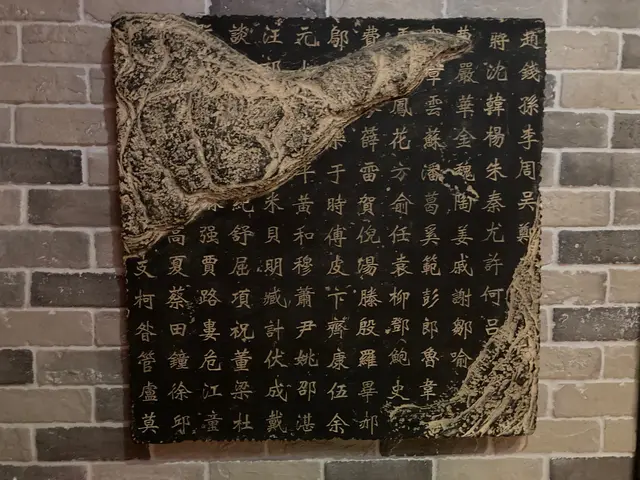 趙錢孫李周吳鄭
將沈韓楊朱秦尤許何呂
嚴華金魏陶姜戚謝鄒喻
章雲蘇潘葛奚範彭郎魯韋
鳳花方俞任袁柳鄧鮑史
費薛雷賀倪湯滕殷羅畢郝
鄔于時傅皮卞齊康伍余
元黃和穆蕭尹姚邵湛
汪米貝明臧計伏成戴
談舒屈項祝董梁杜
强賈路婁危江童
高夏蔡田鐘徐邱
支柯昝管盧莫